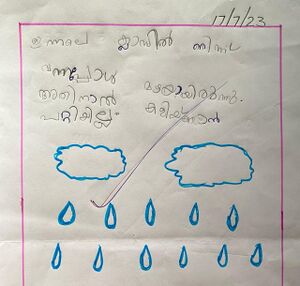 17/7/23
ഇന്നലെ ക്ലാസിൽ നിന്ന്
വന്നപ്പോൾ മഴയായിരുന്നു.
അതിനാൽ കളിയ്ക്കാൻ
പറ്റിയില്ല.